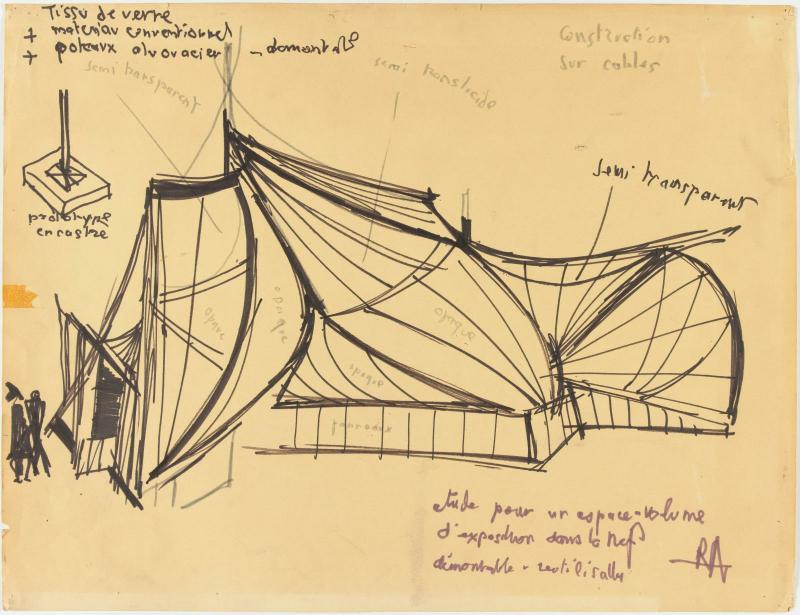 Tissu de verre
+ materiau conventionnel
+ poteaux alu ou acier - demontable
semi transparent
semi translucide
Construction
sur cables
semi transparent
prototype
encastré
opaque
opaque
opaque
opaque
panneaux
etude pour un espace-volume
d'exposition dans la nef
démontable - reutilisable
RA